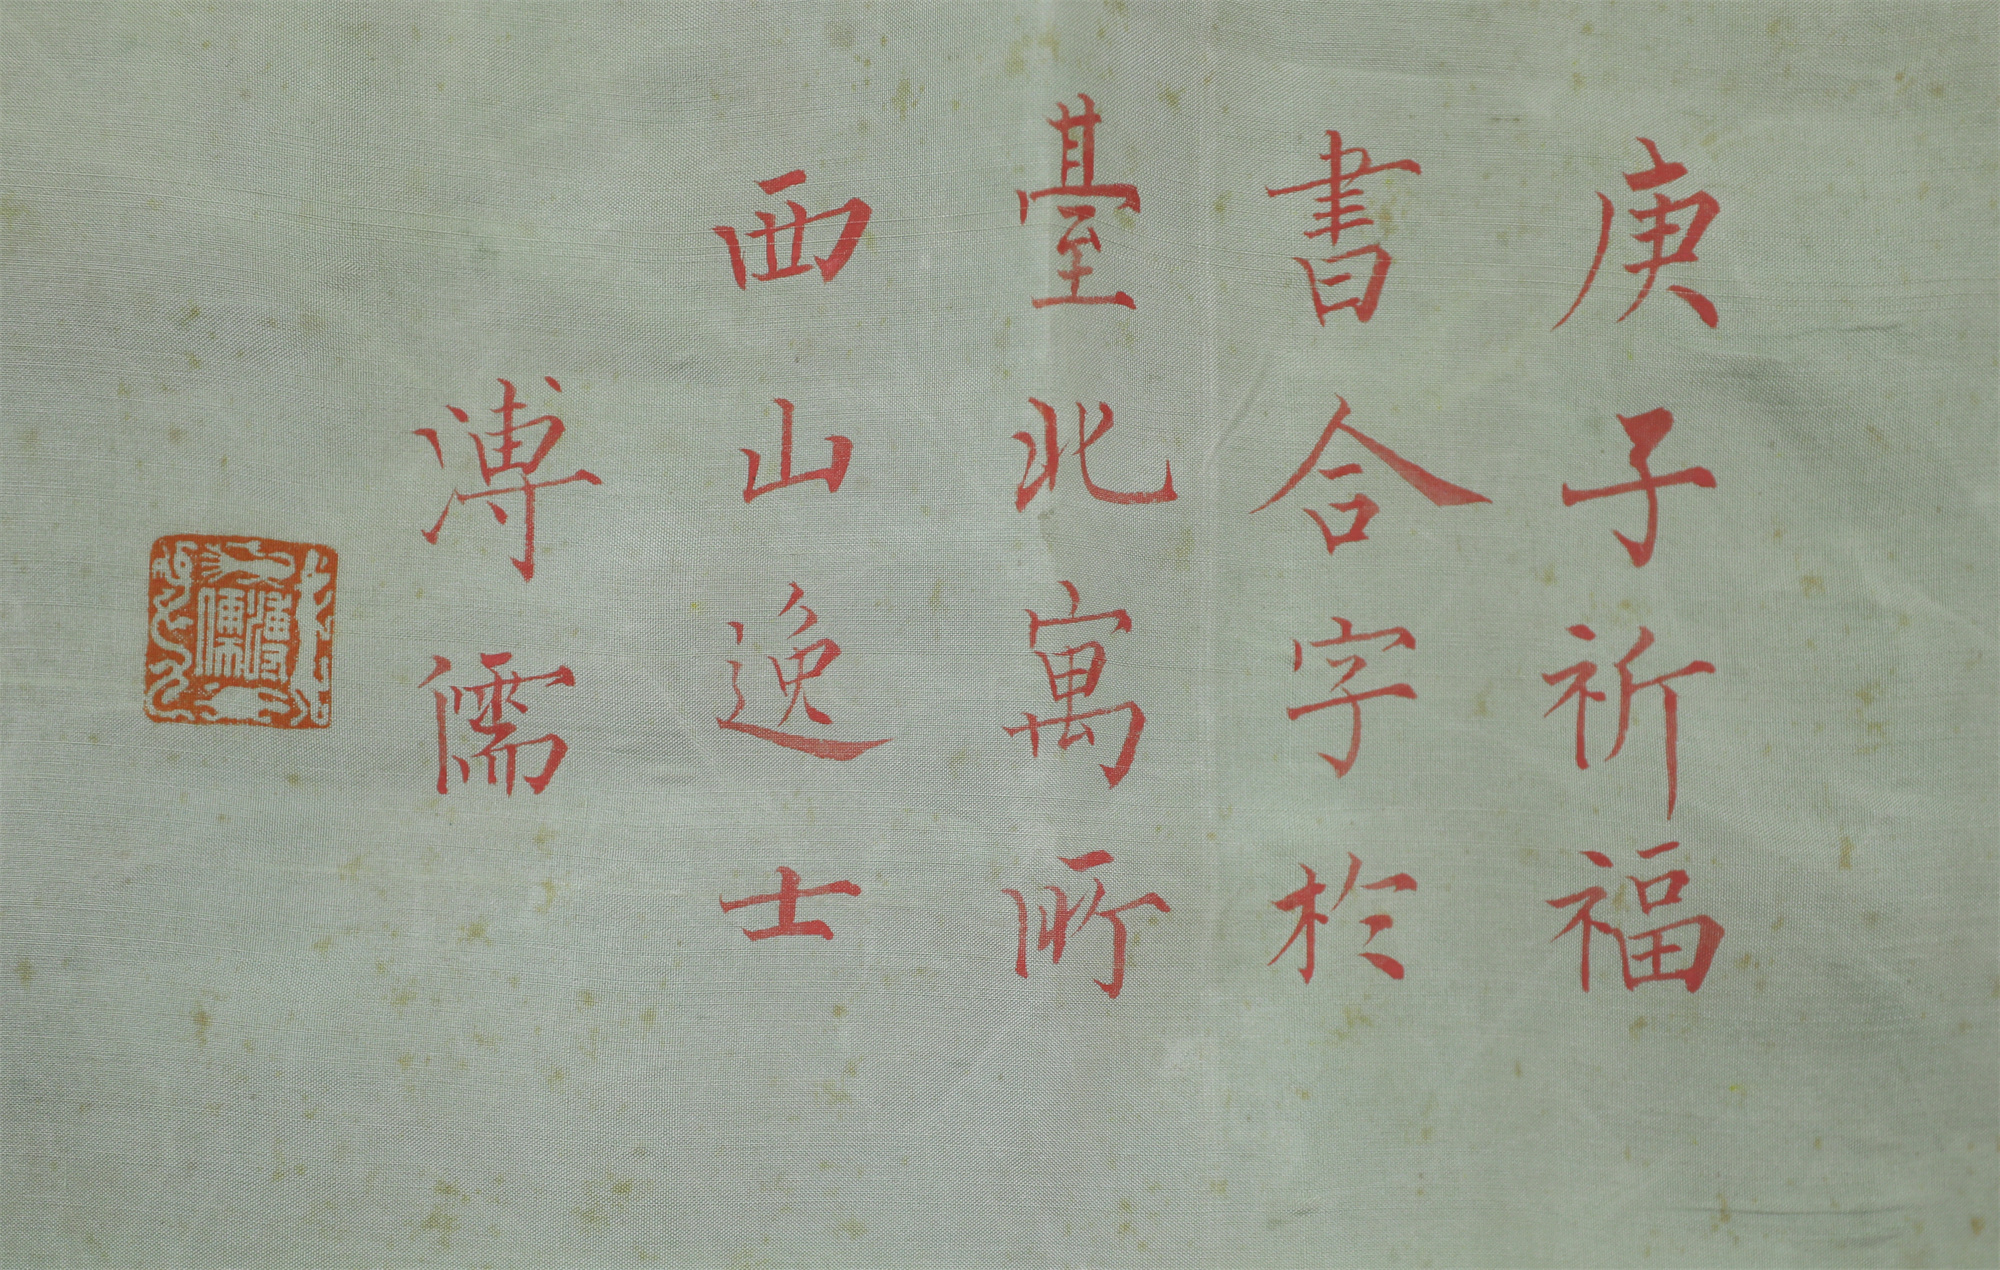 庚子祈福
書合字於
臺北寓所
西山逸士
溥儒
溥儒